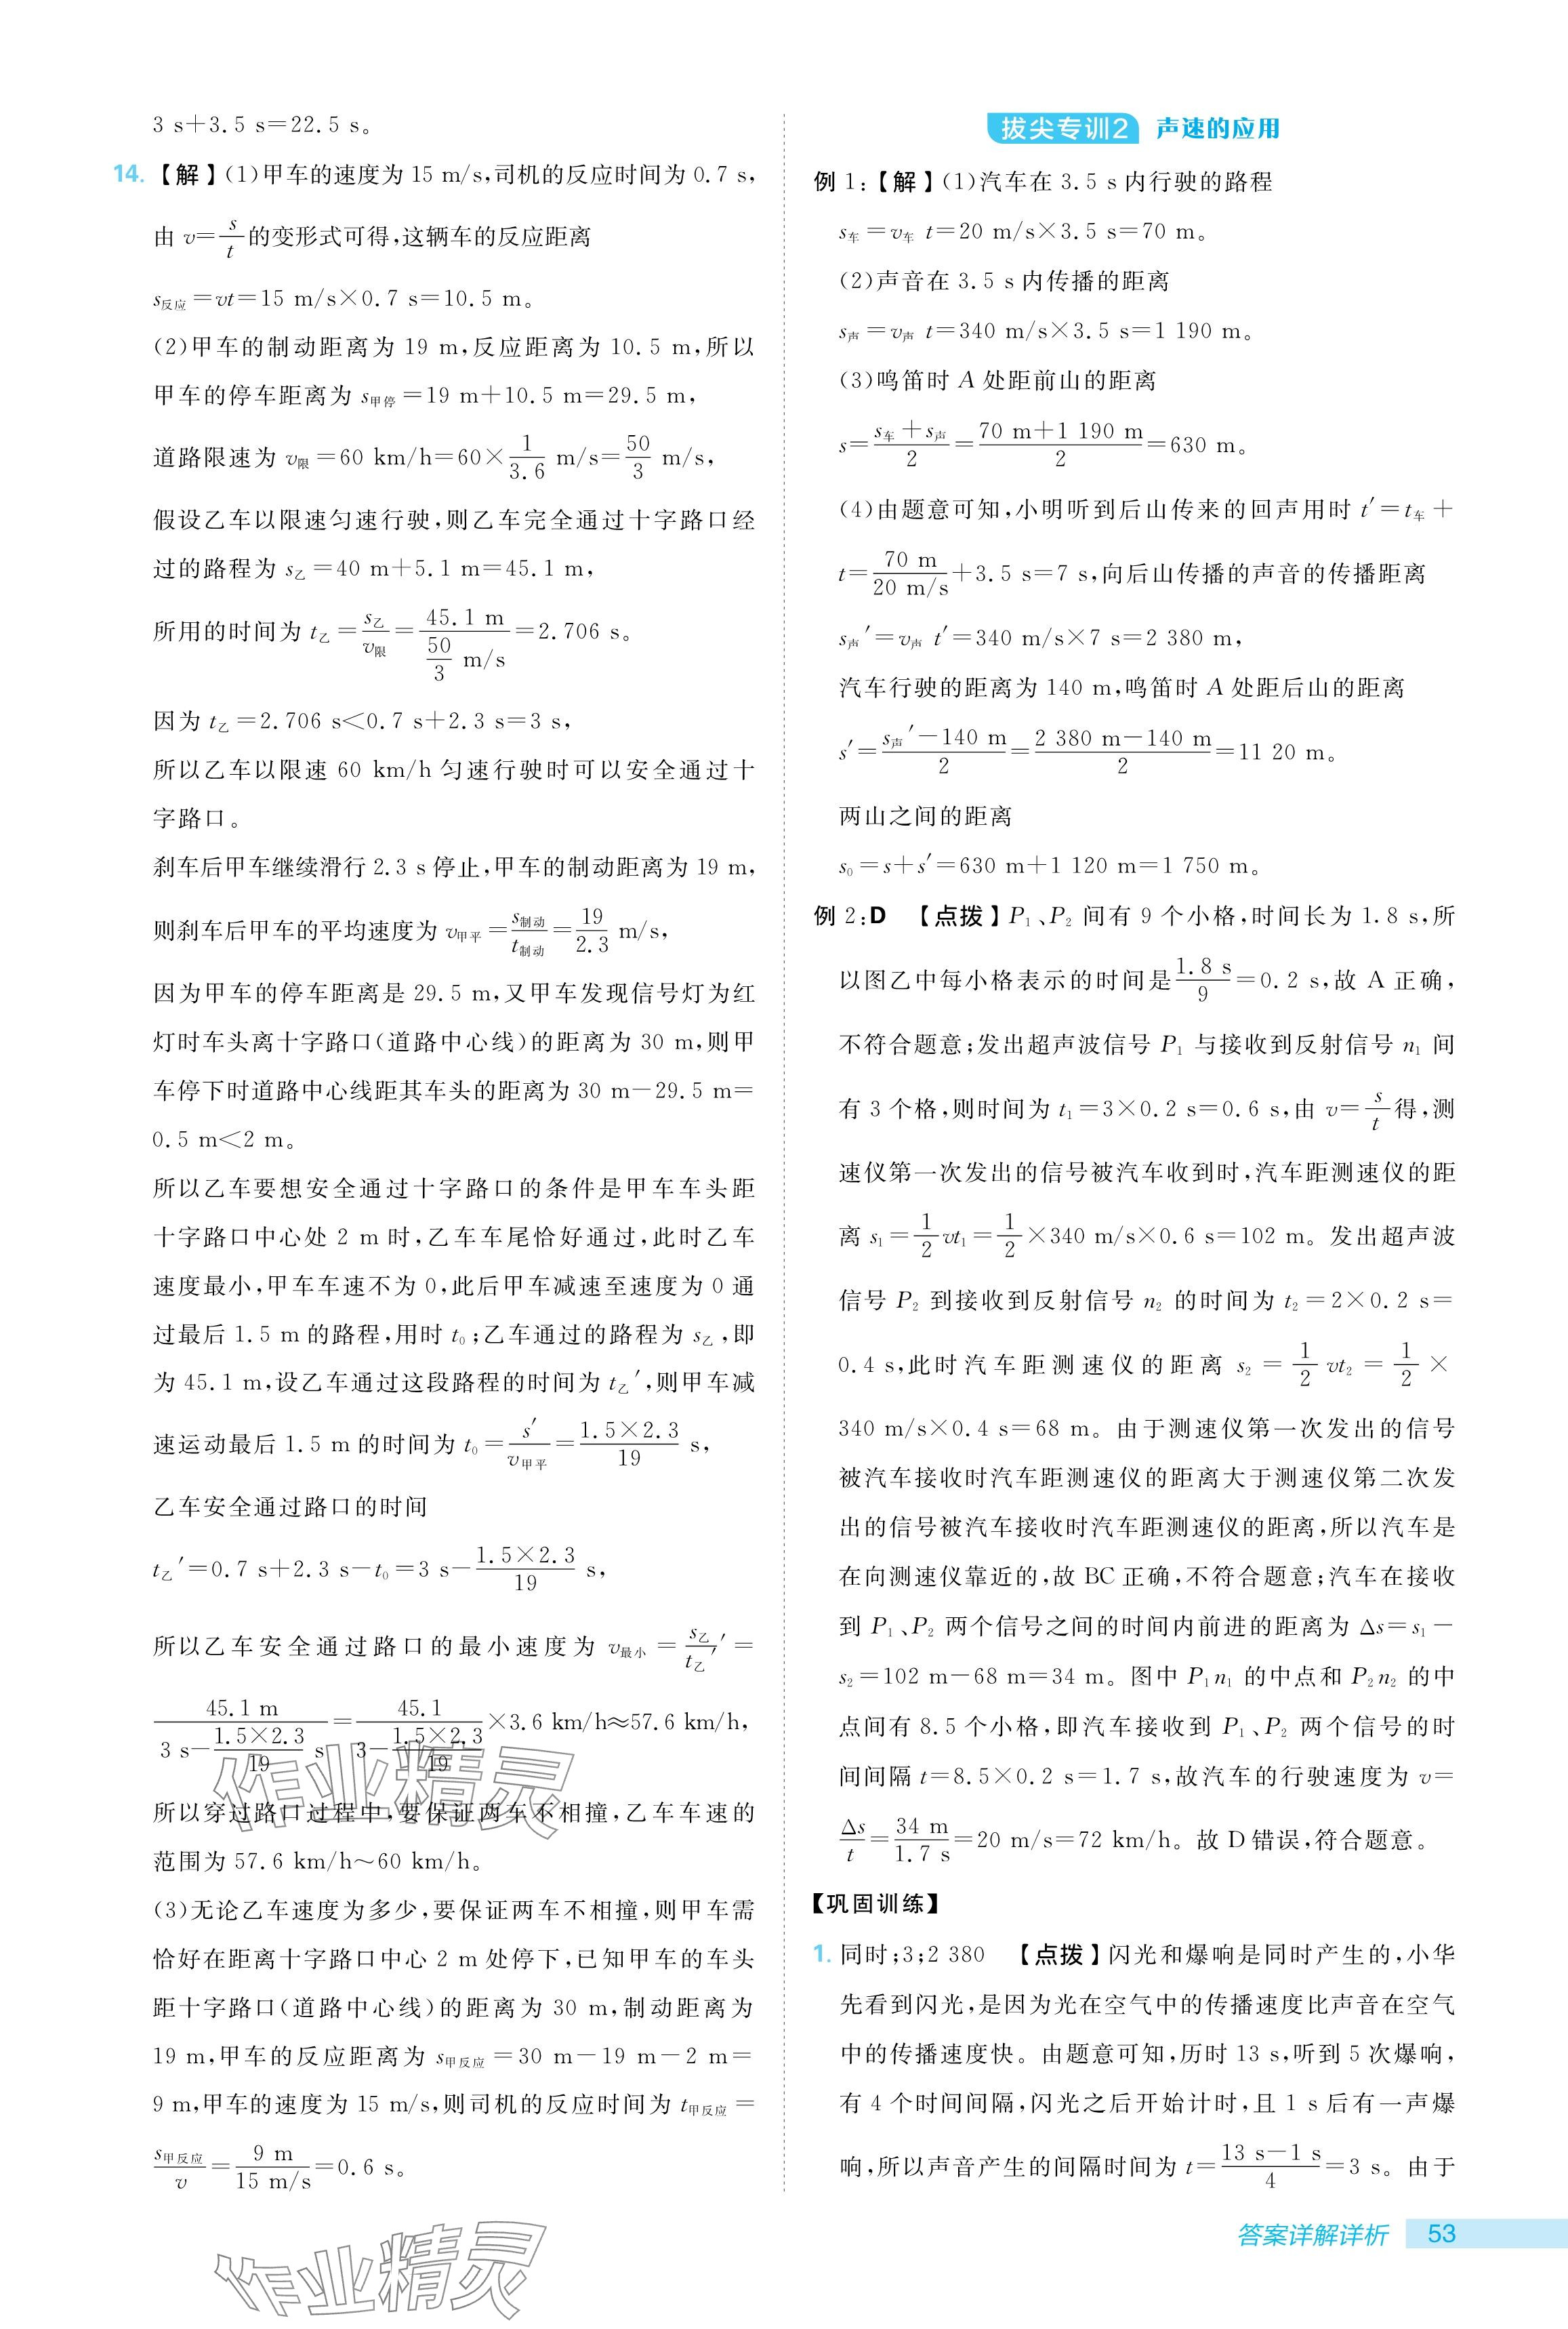 3 s+3.5 s=22.5 s。
14.【解】(1)甲车的速度为 15 m/s,司机的反应时间为 0.7 s,
由 v=s/t 的变形式可得,这辆车的反应距离
s反应=vt=15 m/s×0.7 s=10.5 m。
(2)甲车的制动距离为 19 m,反应距离为 10.5 m,所以
甲车的停车距离为 s甲停=19 m+10.5 m=29.5 m,
道路限速为 v限=60 km/h=60×1/3.6 m/s=50/3 m/s,
假设乙车以限速匀速行驶,则乙车完全通过十字路口经
过的路程为 s乙=40 m+5.1 m=45.1 m,
所用的时间为 t乙=s乙/v限=45.1 m/(50/3 m/s)=2.706 s。
因为 t乙=2.706 s<0.7 s+2.3 s=3 s,
所以乙车以限速 60 km/h 匀速行驶时可以安全通过十
字路口。
刹车后甲车继续滑行 2.3 s 停止,甲车的制动距离为 19 m,
则刹车后甲车的平均速度为 v甲平=s制动/t制动=19/2.3 m/s,
因为甲车的停车距离是 29.5 m,又甲车发现信号灯为红
灯时车头离十字路口(道路中心线)的距离为 30 m,则甲
车停下时道路中心线距其车头的距离为 30 m-29.5 m=
0.5 m<2 m。
所以乙车要想安全通过十字路口的条件是甲车车头距
十字路口中心处 2 m 时,乙车车尾恰好通过,此时乙车
速度最小,甲车车速不为 0,此后甲车减速至速度为 0 通
过最后 1.5 m 的路程,用时 t₀;乙车通过的路程为 s乙,即
为 45.1 m,设乙车通过这段路程的时间为 t乙′,则甲车减
速运动最后 1.5 m 的时间为 t₀=s′/v甲平=1.5×2.3/19 s,
乙车安全通过路口的时间
t乙′=0.7 s+2.3 s-t₀=3 s-1.5×2.3/19 s,
所以乙车安全通过路口的最小速度为 v最小=s乙/t乙′′=
45.1 m/(3 s-1.5×2.3/19 s)=45.1/(3-1.5×2.3/19)×3.6 km/h≈57.6 km/h,
所以穿过路口过程中,要保证两车不相撞,乙车车速的
范围为 57.6 km/h~60 km/h。
(3)无论乙车速度为多少,要保证两车不相撞,则甲车需
恰好在距离十字路口中心 2 m 处停下,已知甲车的车头
距十字路口(道路中心线)的距离为 30 m,制动距离为
19 m,甲车的反应距离为 s甲反应=30 m-19 m-2 m=
9 m,甲车的速度为 15 m/s,则司机的反应时间为 t甲反应=
s甲反应/v=9 m/15 m/s=0.6 s。
拔尖专训2 声速的应用
例 1:【解】(1)汽车在 3.5 s 内行驶的路程
s车=v车 t=20 m/s×3.5 s=70 m。
(2)声音在 3.5 s 内传播的距离
s声=v声 t=340 m/s×3.5 s=1 190 m。
(3)鸣笛时 A 处距前山的距离
s=(s车+s声)/2=(70 m+1 190 m)/2=630 m。
(4)由题意可知,小明听到后山传来的回声用时 t′=t车+
t=70 m/20 m/s+3.5 s=7 s,向后山传播的声音的传播距离
s声′=v声 t′=340 m/s×7 s=2 380 m,
汽车行驶的距离为 140 m,鸣笛时 A 处距后山的距离
s′=(s声′-140 m)/2=(2 380 m-140 m)/2=11 20 m。
两山之间的距离
s₀=s+s′=630 m+1 120 m=1 750 m。
例 2:D 【点拨】P₁、P₂ 间有 9 个小格,时间长为 1.8 s,所
以图乙中每小格表示的时间是1.8 s/9=0.2 s,故 A 正确,
不符合题意;发出超声波信号 P₁ 与接收到反射信号 n₁ 间
有 3 个格,则时间为 t₁=3×0.2 s=0.6 s,由 v=s/t 得,测
速仪第一次发出的信号被汽车收到时,汽车距测速仪的距
离 s₁=1/2 vt₁=1/2×340 m/s×0.6 s=102 m。发出超声波
信号 P₂ 到接收到反射信号 n₂ 的时间为 t₂=2×0.2 s=
0.4 s,此时汽车距测速仪的距离 s₂=1/2 vt₂=1/2×
340 m/s×0.4 s=68 m。由于测速仪第一次发出的信号
被汽车接收时汽车距测速仪的距离大于测速仪第二次发
出的信号被汽车接收时汽车距测速仪的距离,所以汽车是
在向测速仪靠近的,故 BC 正确,不符合题意;汽车在接收
到 P₁、P₂ 两个信号之间的时间内前进的距离为 Δs=s₁-
s₂=102 m-68 m=34 m。图中 P₁n₁ 的中点和 P₂n₂ 的中
点间有 8.5 个小格,即汽车接收到 P₁、P₂ 两个信号的时
间间隔 t=8.5×0.2 s=1.7 s,故汽车的行驶速度为 v=
Δs/t=34 m/1.7 s=20 m/s=72 km/h。故 D 错误,符合题意。
【巩固训练】
1. 同时;3;2 380 【点拨】闪光和爆响是同时产生的,小华
先看到闪光,是因为光在空气中的传播速度比声音在空气
中的传播速度快。由题意可知,历时 13 s,听到 5 次爆响,
有 4 个时间间隔,闪光之后开始计时,且 1 s 后有一声爆
响,所以声音产生的间隔时间为 t=(13 s-1 s)/4=3 s。由于
答案详解详析 53
作业精灵
作业精灵